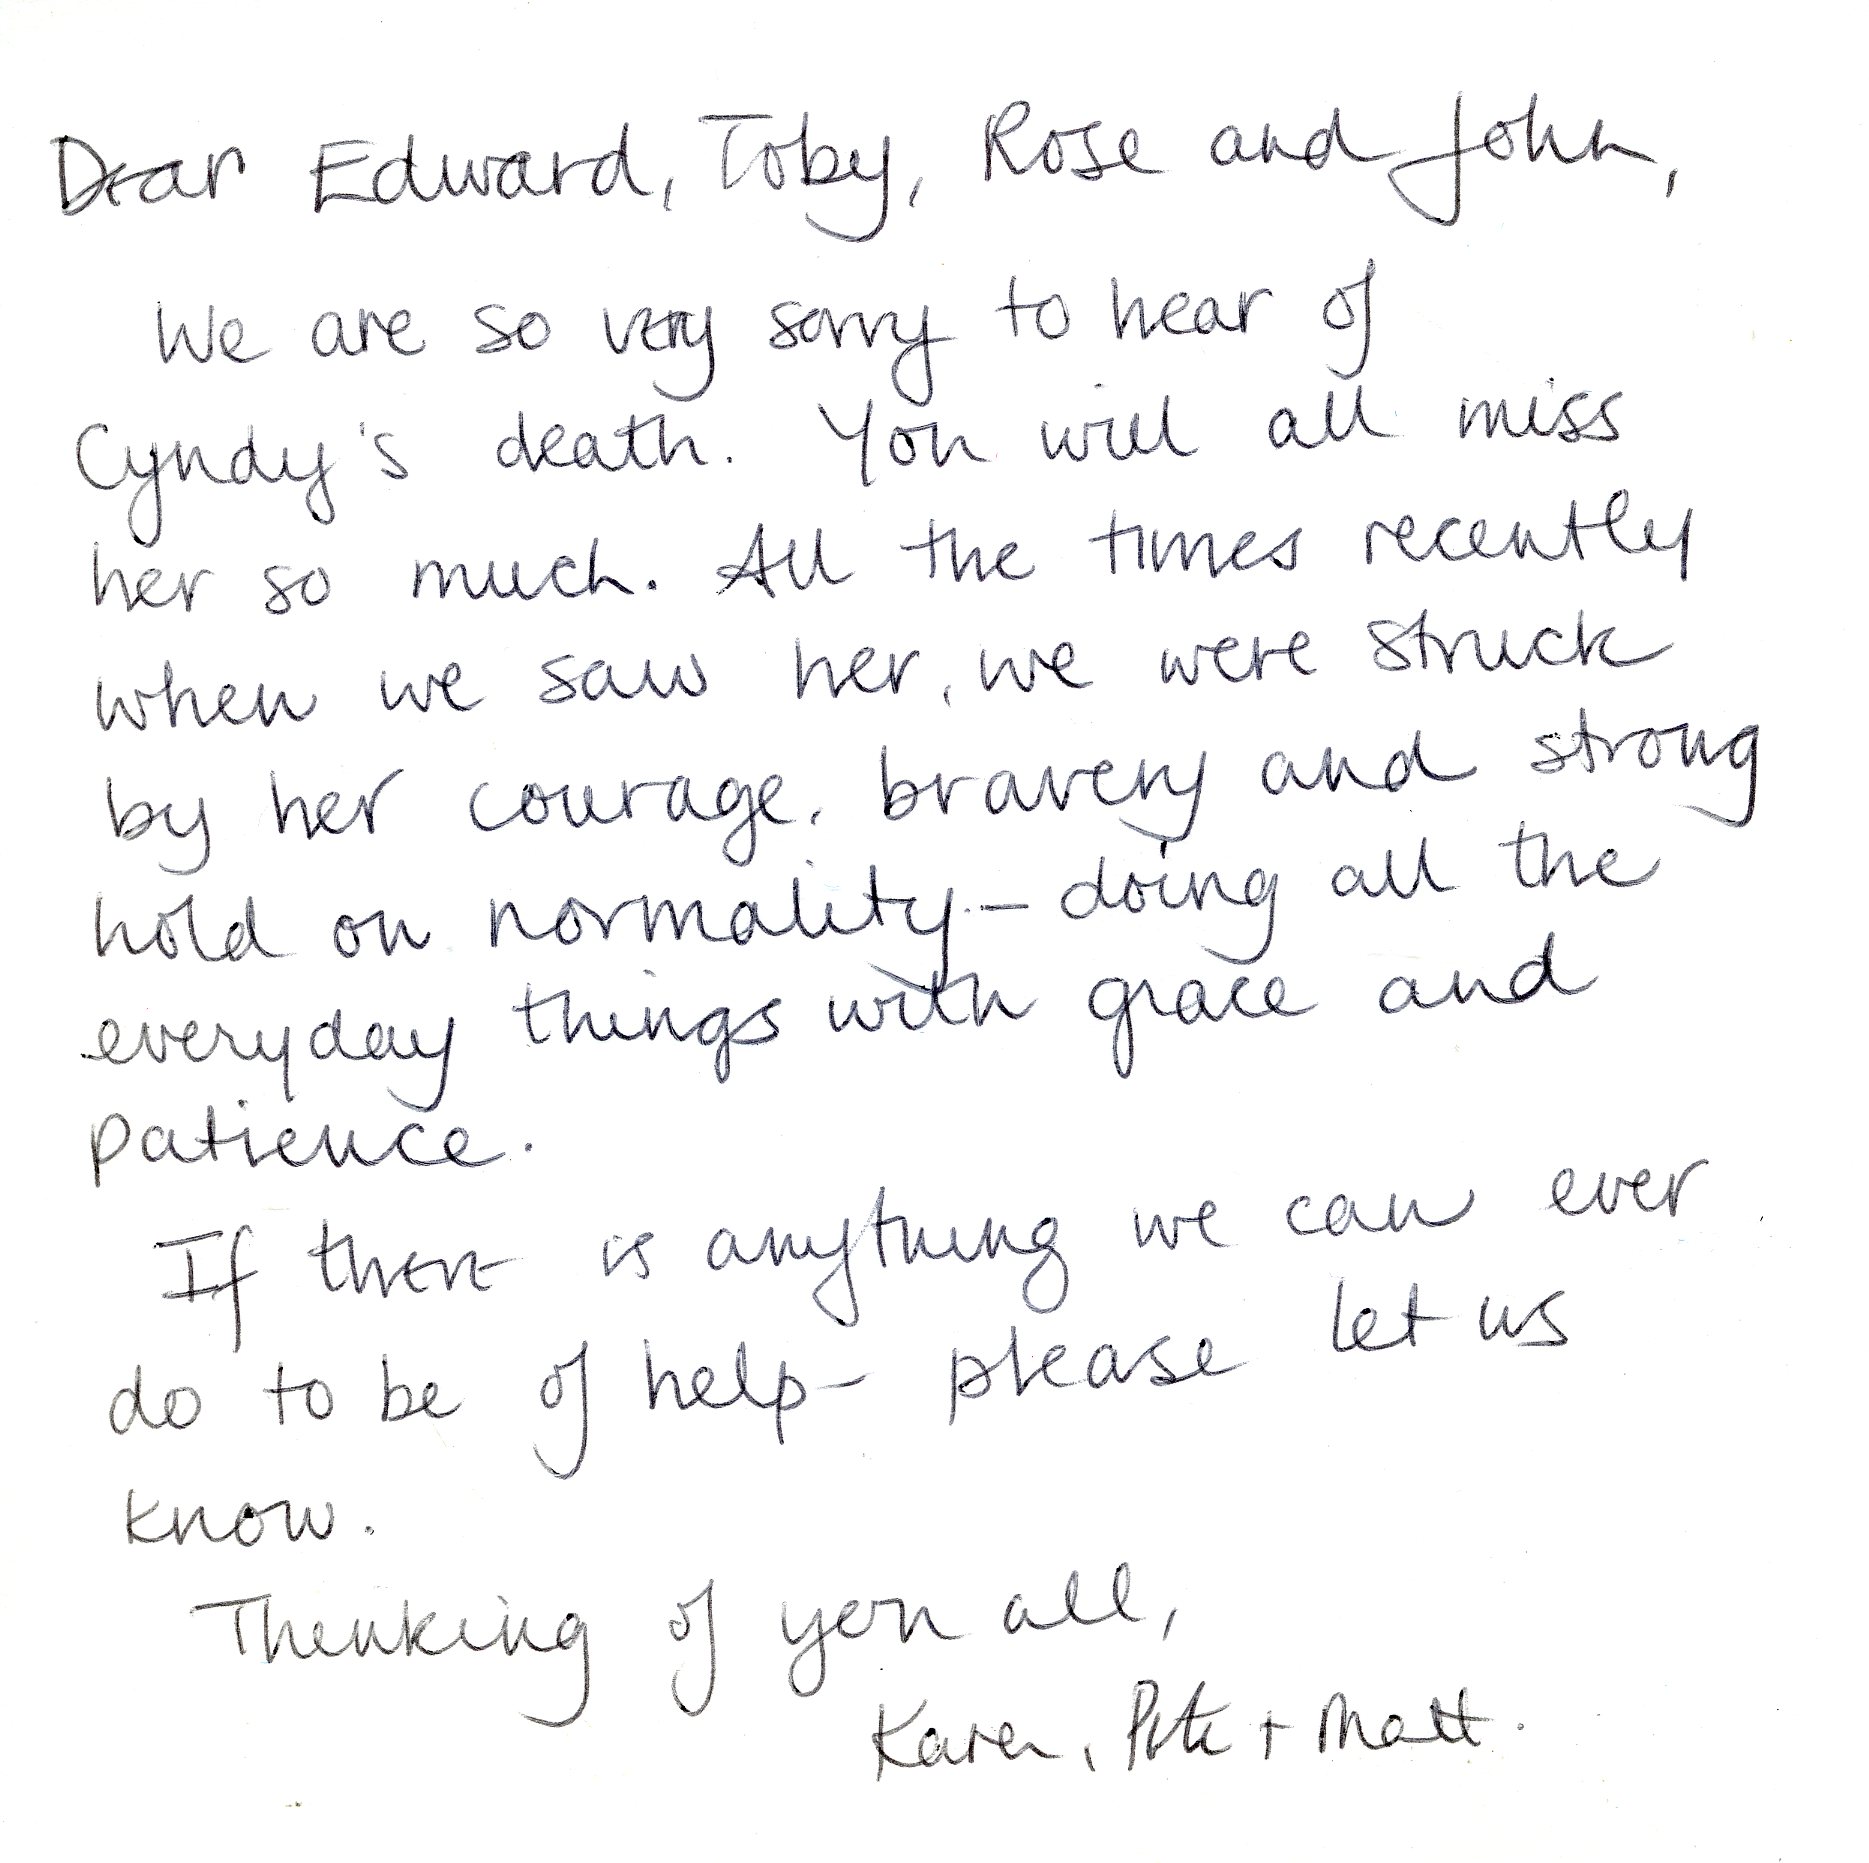 Dear Edward, Toby, Rose and John,
We are so very sorry to hear of
Cyndy's death. You will all miss
her so much. All the times recently
when we saw her, we were struck
by her courage, bravery and strong
hold on normality – doing all the
everyday things with grace and
patience.
If there is anything we can ever
do to be of help – please let us
know.
Thinking of you all,
Karen, Pete + Matt.